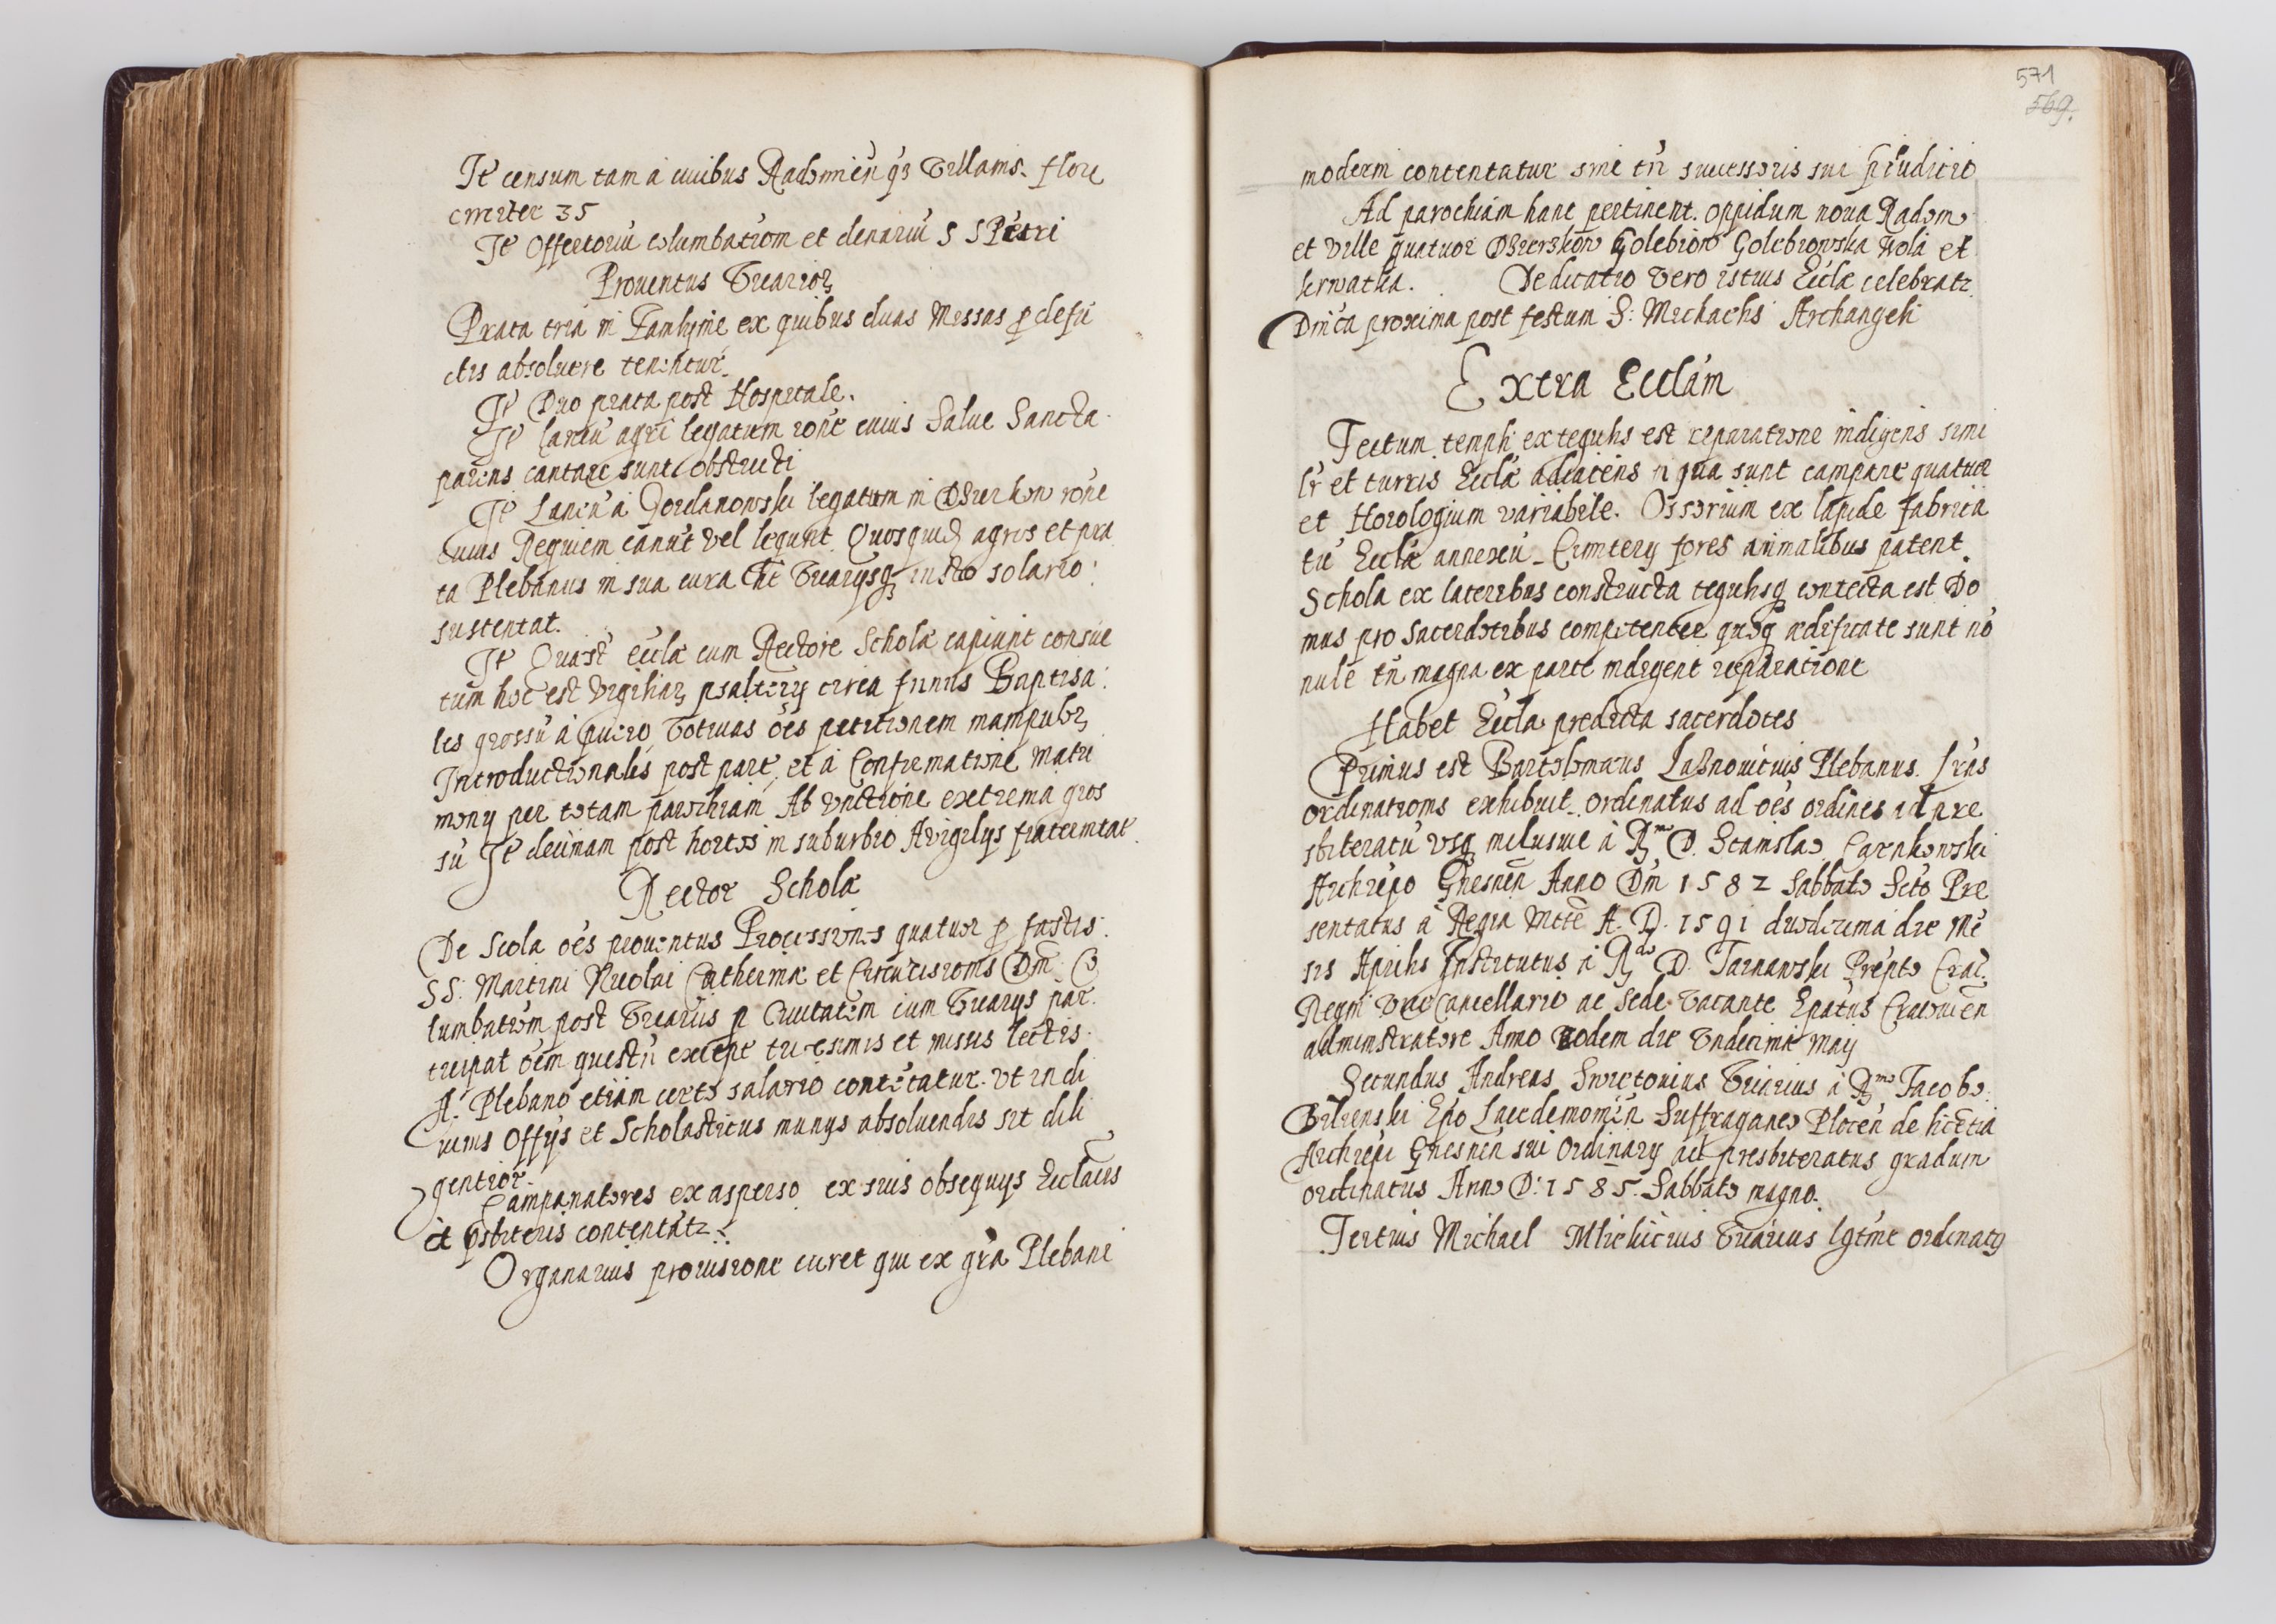 Ite censum tam a ciuibus Radomien qz Villanis. flore
citer 35
It Offertoriu columbatiom et denariu S S Petri
Prouentus Vicarioz
Prata tria in Jamlynie ex quibus duas Missas p defu
ctis absoluere tenentur.
It Duo prata post Hospitale.
It laneu agri legatum rone cuius Salue Sancta
parens cantare sunt obstricti
It Laneu a Jordanowski legatum in Dzierkow rone
cuius Requiem canut vel legunt Quosquid agros et pra
ta Plebanus in sua cura het Vicarysqz iusto solario
sustentat.
It Quast eccla cum Rectore Schola capiunt consue
tum hoc est vigiliaz psaltery circa funus Baptisa
les grossu a puero, Votiuas oes petitionem manipuloz
Introductionales post part, et a Confirmatione Matri
mony per totam parochiam Ab vnctione extrema gros
su It decimam post hortos in suburbio A vigilys fraternitat.
Rector Schola
De Scola oes prouentus Processiones quatuor p fastis
SS. Martini Nicolai Catherina et Circucisionis Dm Co
lumbatiom post Vicariis p Ciuitatem cum Vicarys par
ticipat oem questu except tricesimis et missis lectis
A Plebano etiam certo salario contetatur. Vt in di
uinis Offys et Scholasticus munys absoluendis sit dili
gentior.
Campanatores ex asperso ex suis obsequys Ecclaiis
et psbiteris contentatz.
Organarius prouisione curet qui ex gra Plebani
571
569.
moderni contentatur sine tn successoris sui priudicio
Ad parochiam hanc pertinent. oppidum noua Radom
et ville quatuor Dzierzkow Golebiow Golebiowska Wola et
Dedicatio vero istius Eccla celebratz
Dnica proxima post festum S: Michaelis Archangeli
Extra Ecclam
Tectum templi ex tegulis est reparatione indigens simi
lr et turris Eccla adiacens i qua sunt campane quatuor
et Horologium variabile. Ossorium ex lapide fabrica
tu Eccla annexu. Cimitery fores animalibus patent
Schola ex lateribus constructa tegulisq contecta est Do
mus pro sacerdotibus competenter quoq ædificate sunt no
nulle tn magna ex parte indigent reparatione
Habet Eccla predicta sacerdotes
Primus est Bartolomæus Laßnouicius Plebanus. lras
ordinationis exhibuit. ordinatus ad oes ordines ad pre
sbiteratu vsq inclusiue a Rmo D. Stanislao Carnkowski
Archiepo Gnesnen Anno Dm 1582 Sabbato Scto Pre
sentatus a Regia Mtte A. D. 1591 duodecima die Me
sis Aprilis Institutus a Rdo D. Tarnawski Prepto Crac.
Regni Vice Cancellario ac Sede Vacante Epatus Cracouien
administratore Anno Eodem die Vndecima May
Secundus Andreas Swictouius Vicarius a Rmo Jacobo
Bilienski Epo Lacedemonien Suffraganeo Plocen de licetia
Archiepi Gnesnen sui Ordinary ad presbiteratus gradum
ordinatus Anno D: 1585. Sabbato magno.
Tertius Michael Vicarius lgtme ordinatq